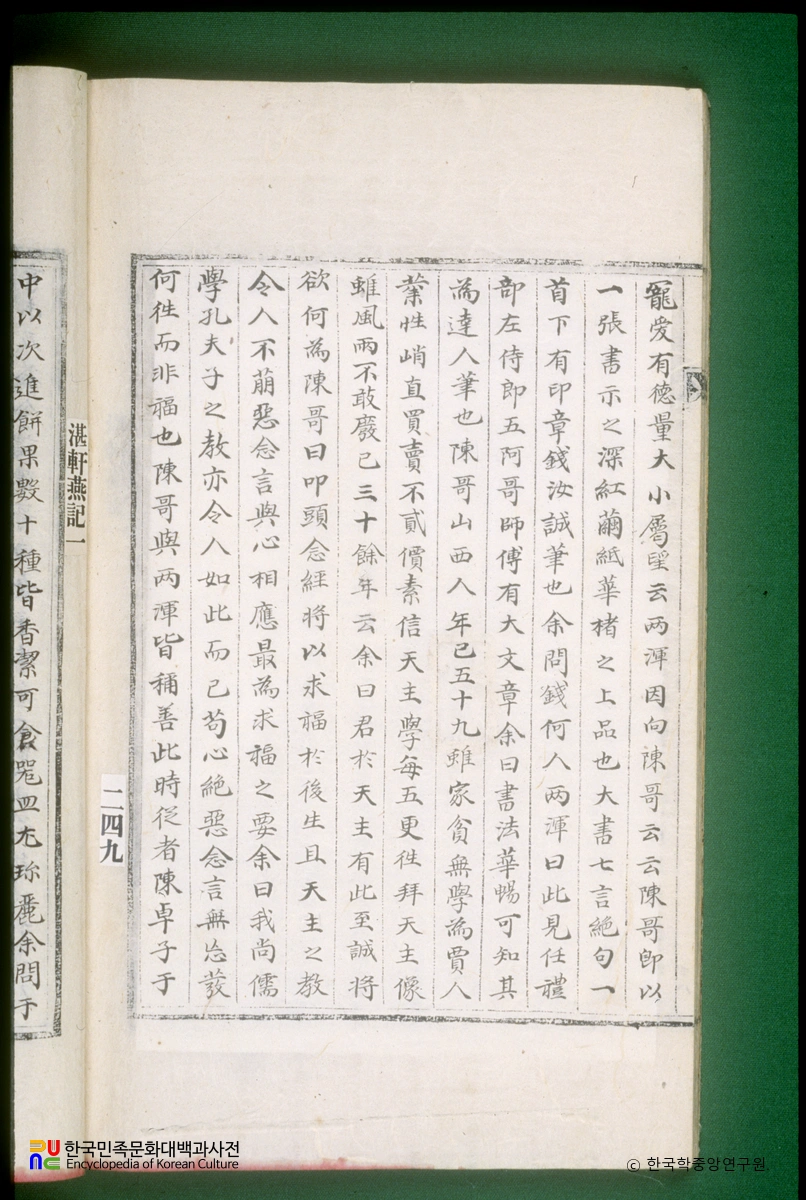 寵愛有德量大小屬望云兩渾因向陳哥云云陳哥卽以
一張書示之深紅繭紙華楮之上品也大書七言絶句一
首下有印章錢汝誠筆也余問錢何人兩渾曰此見任禮
部左侍郎五阿哥師傅有大文章余曰書法華暢可知其
為達人筆也陳哥山西人年已五十九雖家貧無學為賈人
業性峭直買賣不貳價素信天主學每五更徃拜天主像
雖風雨不敢廢已三十餘年云余曰君於天主有此至誠將
欲何為陳哥曰叩頭念經將以求福於後生且天主之教
令人不萠惡念言與心相應最為求福之要余曰我尙儒
學孔夫子之教亦令人如此而已苟心絶惡念言無忩發
何徃而非福也陳哥與兩渾皆稱善此時從者陳卓子于
二四九
湛軒燕記一
中以次進餠果數十種皆香潔可食噐皿尤珎麗余問于
한국민족문화대백과사전
Encyclopedia of Korean Culture
© 한국학중앙연구원.